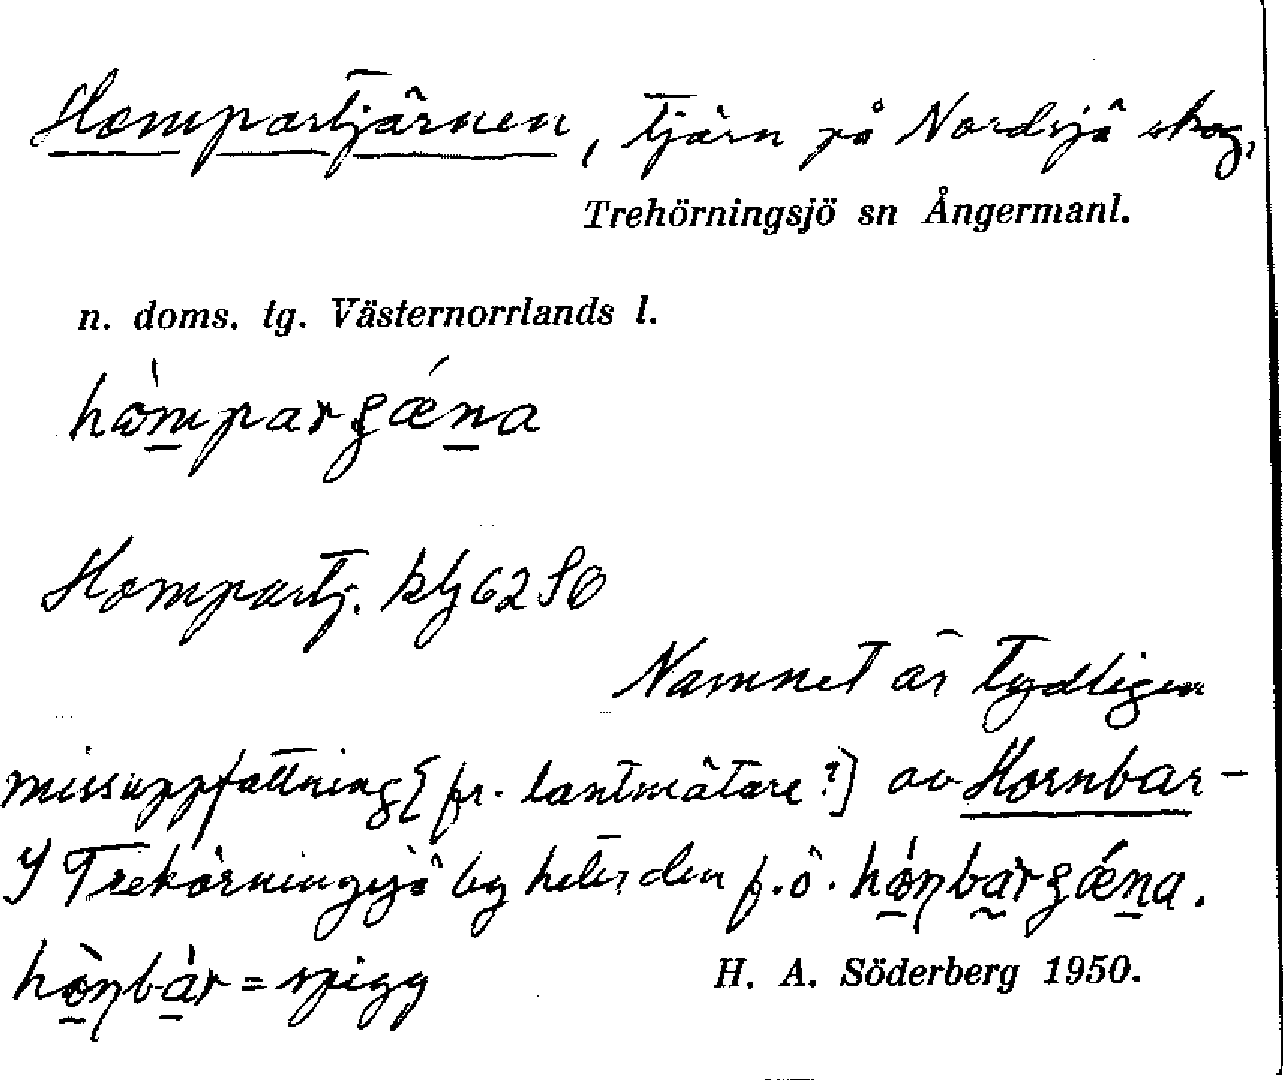 Hompartjärnen, tjärn på Nordsjö skog,
Trehörningsjö sn Ångermanl.
n. doms. tg. Västernorrlands l.
Hompartj. klj 62 SO
Namnet är tydligen
missuppfattning [fr. lantmätare?] av Hornbar-
I Trehörningsjö by heter den f.ö.
= spigg
H. A. Söderberg 1950.